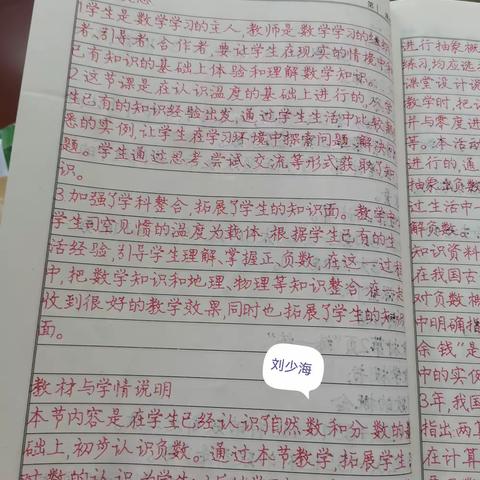 1学生是数学学习的主人，教师是数学学习的组织
者、引导者、合作者，要让学生在现实的情境中和
已有知识的基础上体验和理解数学知识。
2这节课是在认识温度的基础上进行的，从学
生已有的知识经验出发，通过学生生活中比较熟
悉的实例，让学生在学习环境中探索问题、解决问
题。学生通过思考、尝试、交流等形式获取了知
识。
3加强了学科整合，拓展了学生的知识面。教学中
学生司空见惯的温度为载体，根据学生已有的生
活经验，引导学生理解、掌握正、负数，在这一过程
中，把数学知识和地理、物理等知识整合在一起
收到很好的教学效果，同时也拓展了学生的知识
面。
刘少海
教材与学情说明
本节内容是在学生已经认识了自然数和分数的基
础上，初步认识负数。通过本节教学，拓展学生
对数的认识
进行抽象概
练习，均应选
课堂设计说
教学时，把认
并与零度进
等。本活动
进行的，通
抽象出负数
过生活中一
解负数。
知识资料
在我国古
对负数概
中明确指
余钱“是
中的实例
3年，我国
指出：两算
在计算